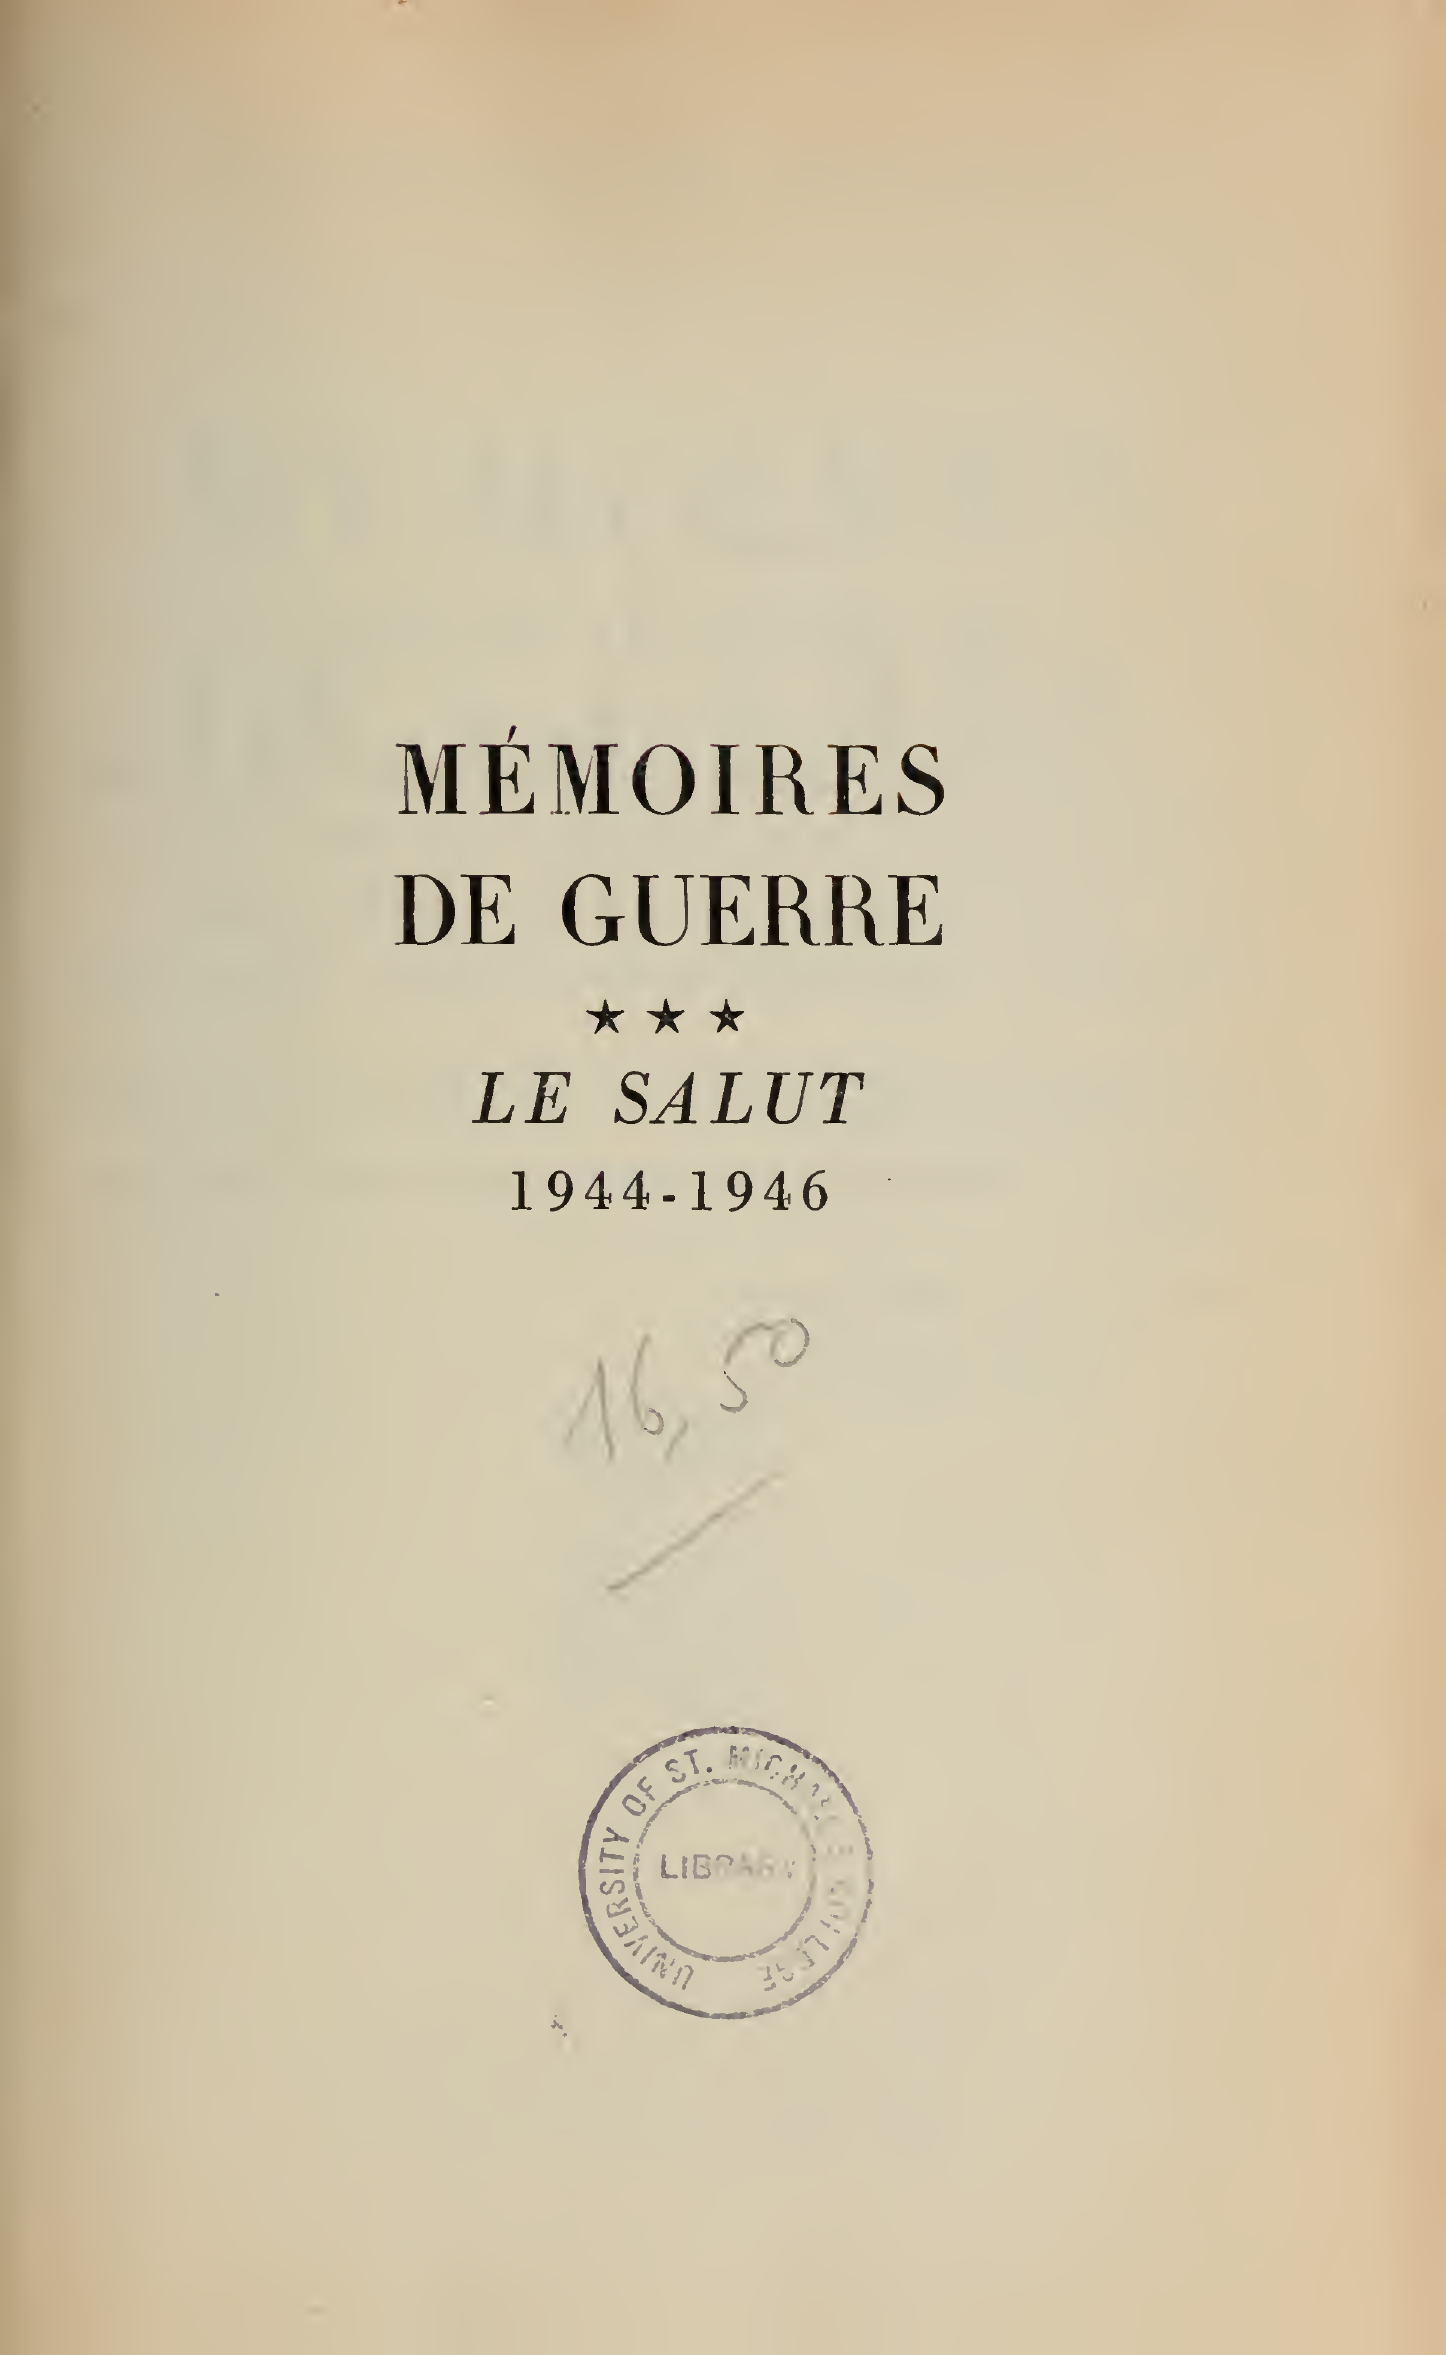 MÉMOIRES
DE GUERRE
★ ★ ★
LE SALUT
1944-1946
16,50
UNIVERSITY OF ST. MICHAEL'S COLLEGE
LIBRARY